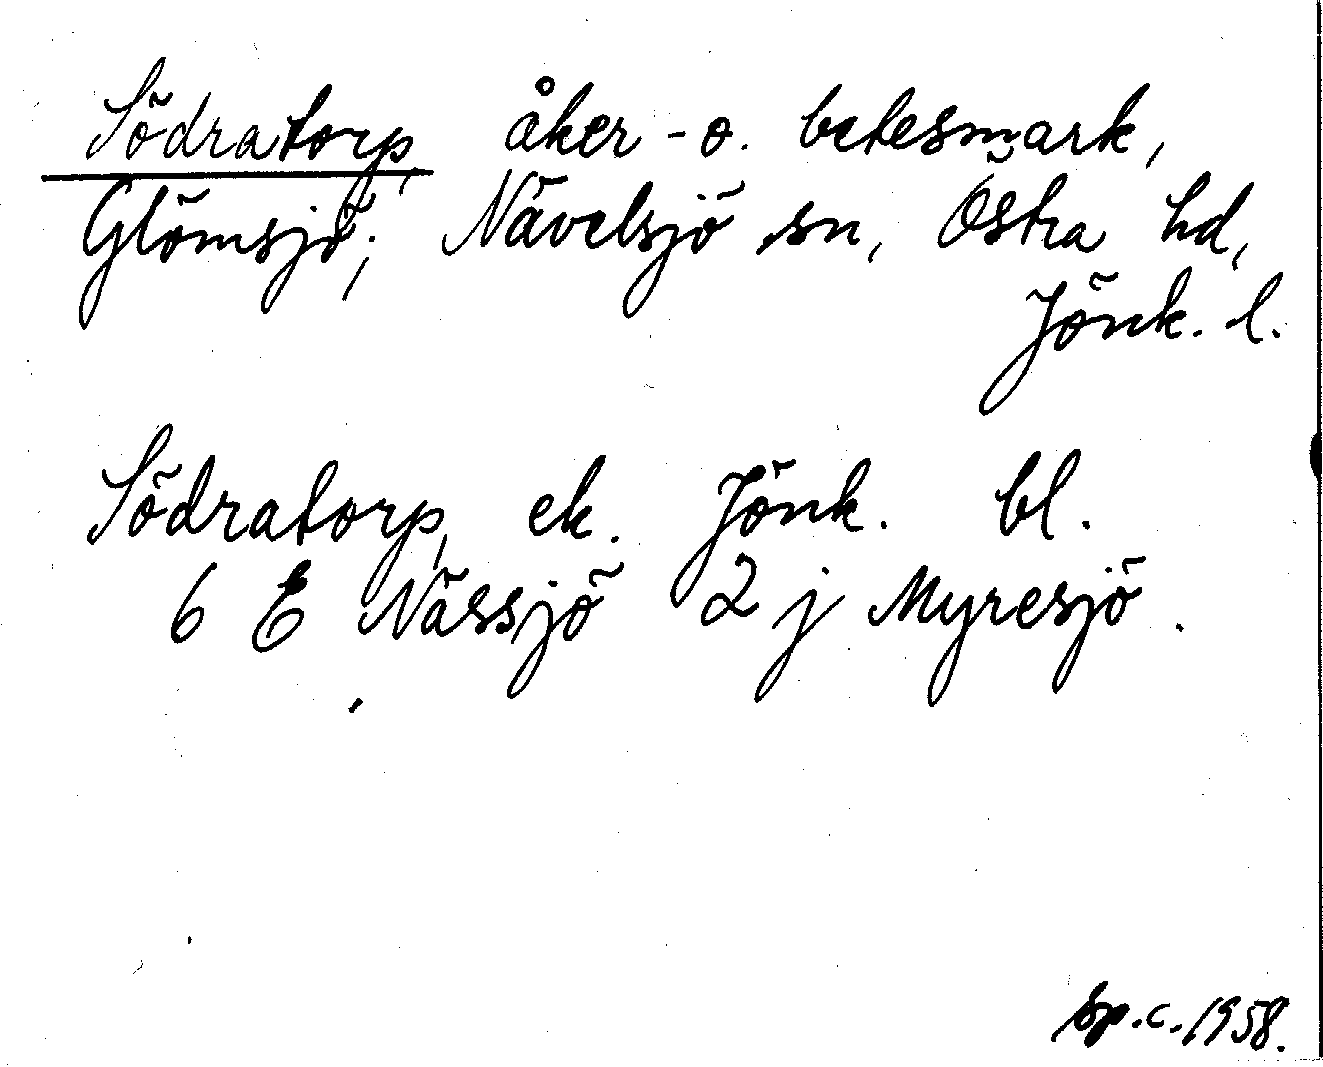 Södratorp, åker- o. betesmark,
Glömsjö; Nävelsjö sn, Östra hd,
Jönk. l.
Södratorp, ek. Jönk. bl.
6 E Nässjö 2 j Myresjö.
Sp.c. 1958.